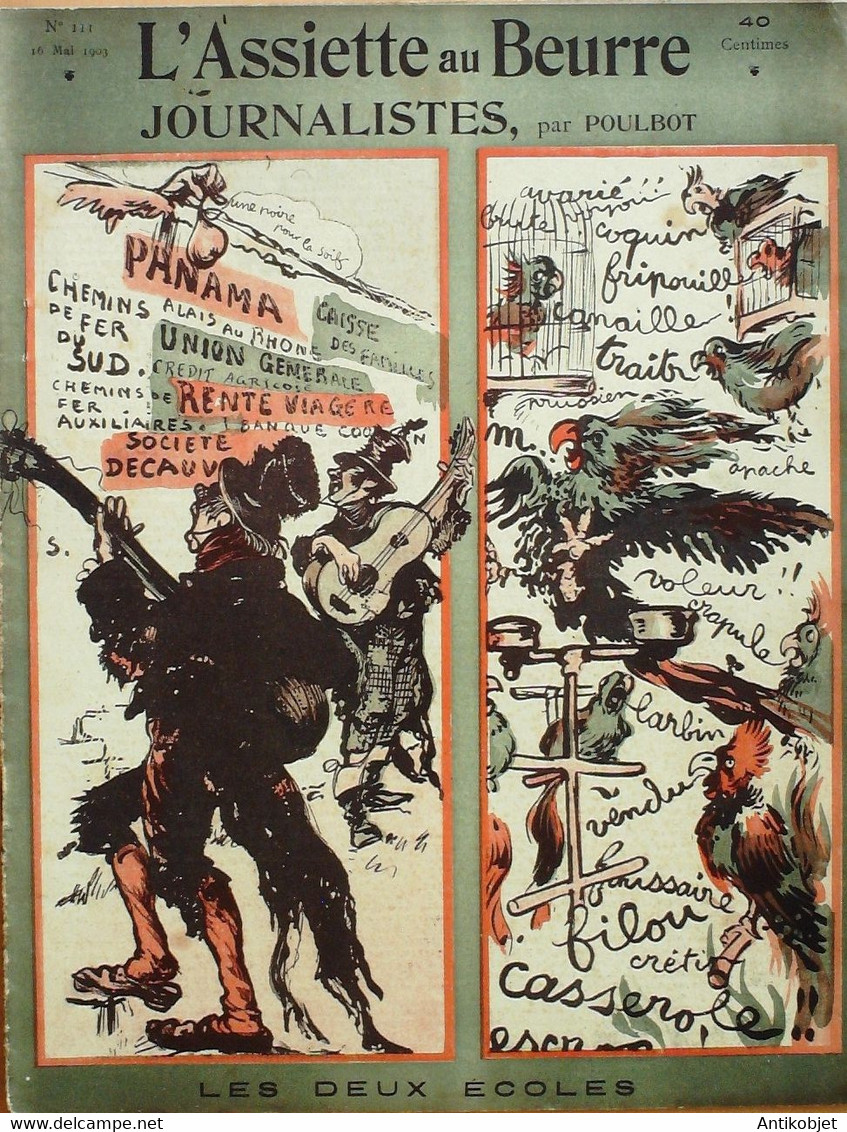 N° 111
16 Mai 1903
L'Assiette au Beurre
40
Centimes
JOURNALISTES, par POULBOT
une poire
pour la soif
PANAMA
CHEMINS
DE FER
DU
SUD.
ALAIS AU RHONE
CAISSE
DES FAMILLES
UNION GENERALE
CREDIT AGRICOLE
CHEMINS DE
FER
AUXILIAIRES.
RENTE VIAGERE
BANQUE
SOCIETE
DECAUV
S.
avarié
brute
coquin
fripouille
canaille !
traitr
prussien
m.
apache
voleur !!
crapule
larbin
vendu
faussaire
filou
crétin
casserole !!
LES DEUX ÉCOLES
Antikobjet